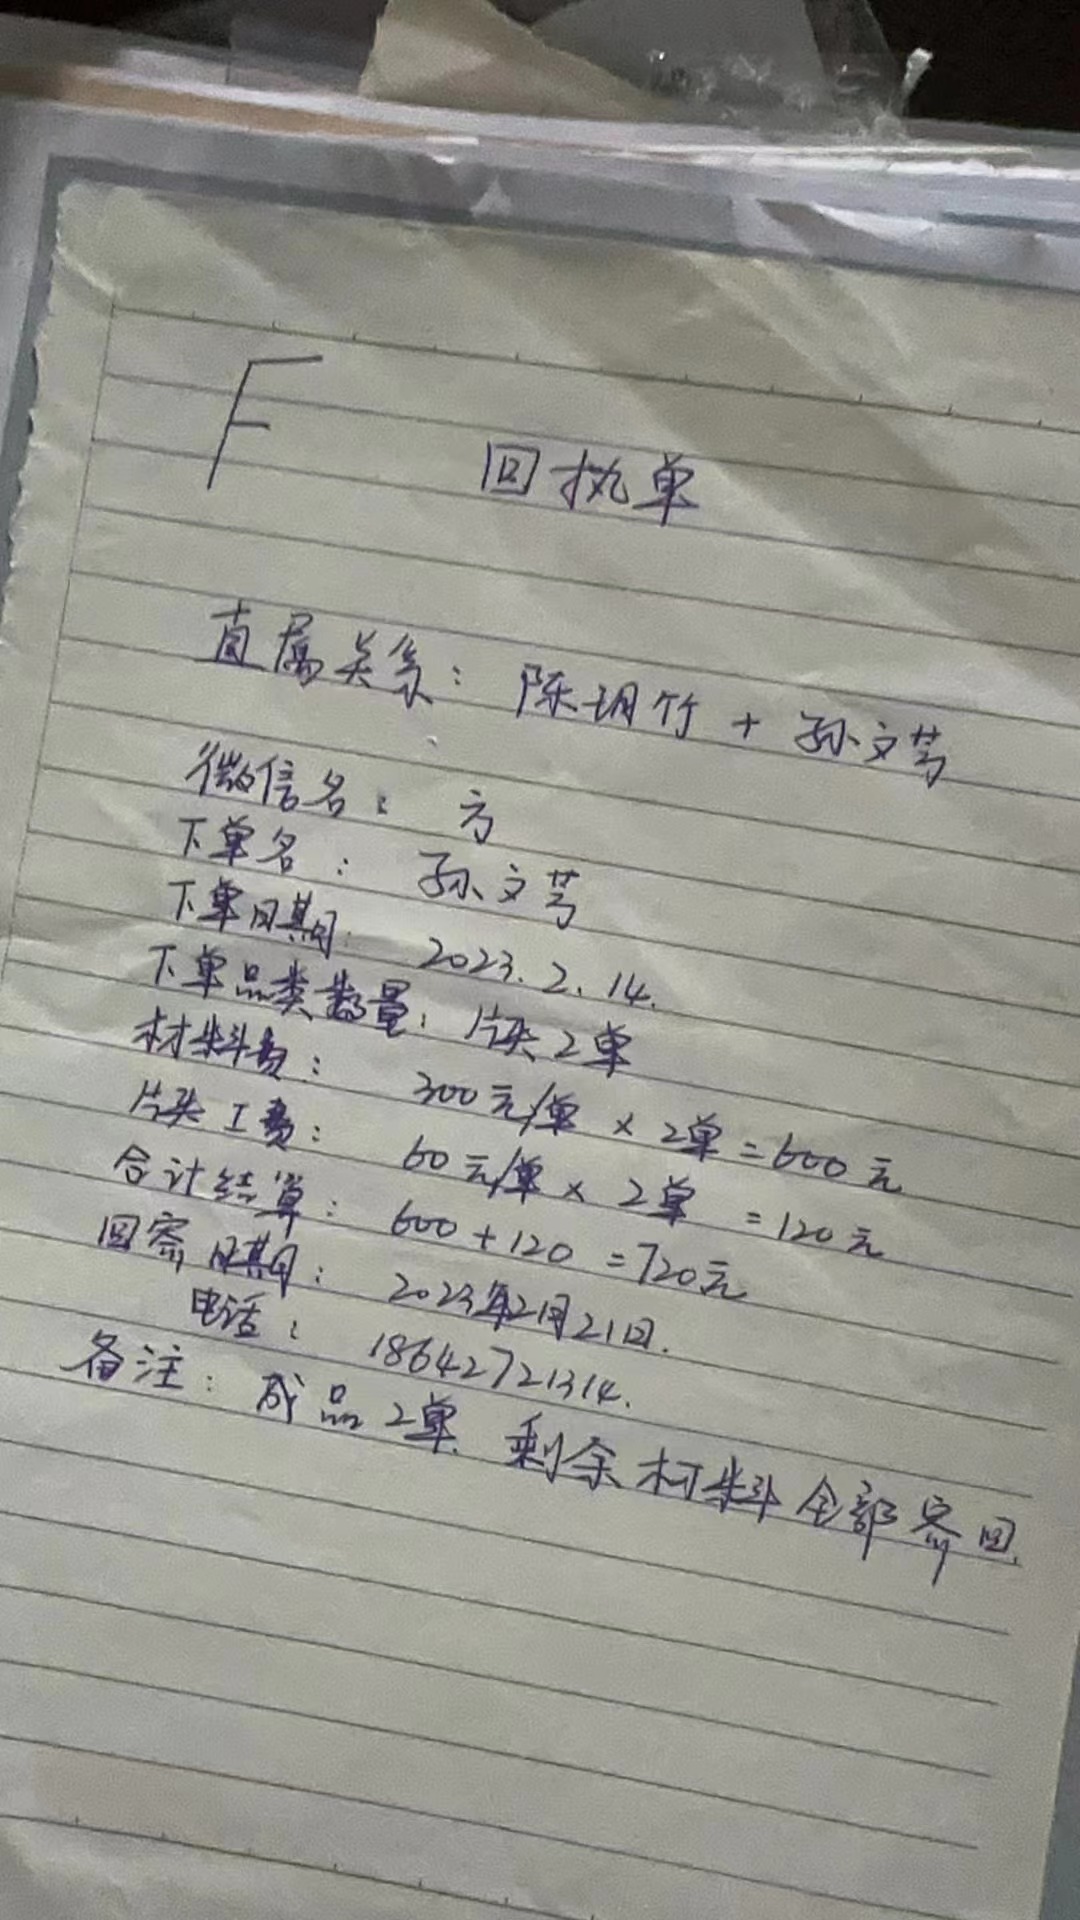 F
回执单
直属关系：陈玥竹 + 孙文芳
微信名：方
下单名：孙文芳
下单日期：2023.2.14.
下单品类数量：片头2单
材料费：300元/单 × 2单 = 600元
片头工费：60元/单 × 2单 = 120元
合计结算：600 + 120 = 720元
回寄日期：2023年2月21日.
电话：18642721314.
备注：成品2单. 剩余材料全部寄回.